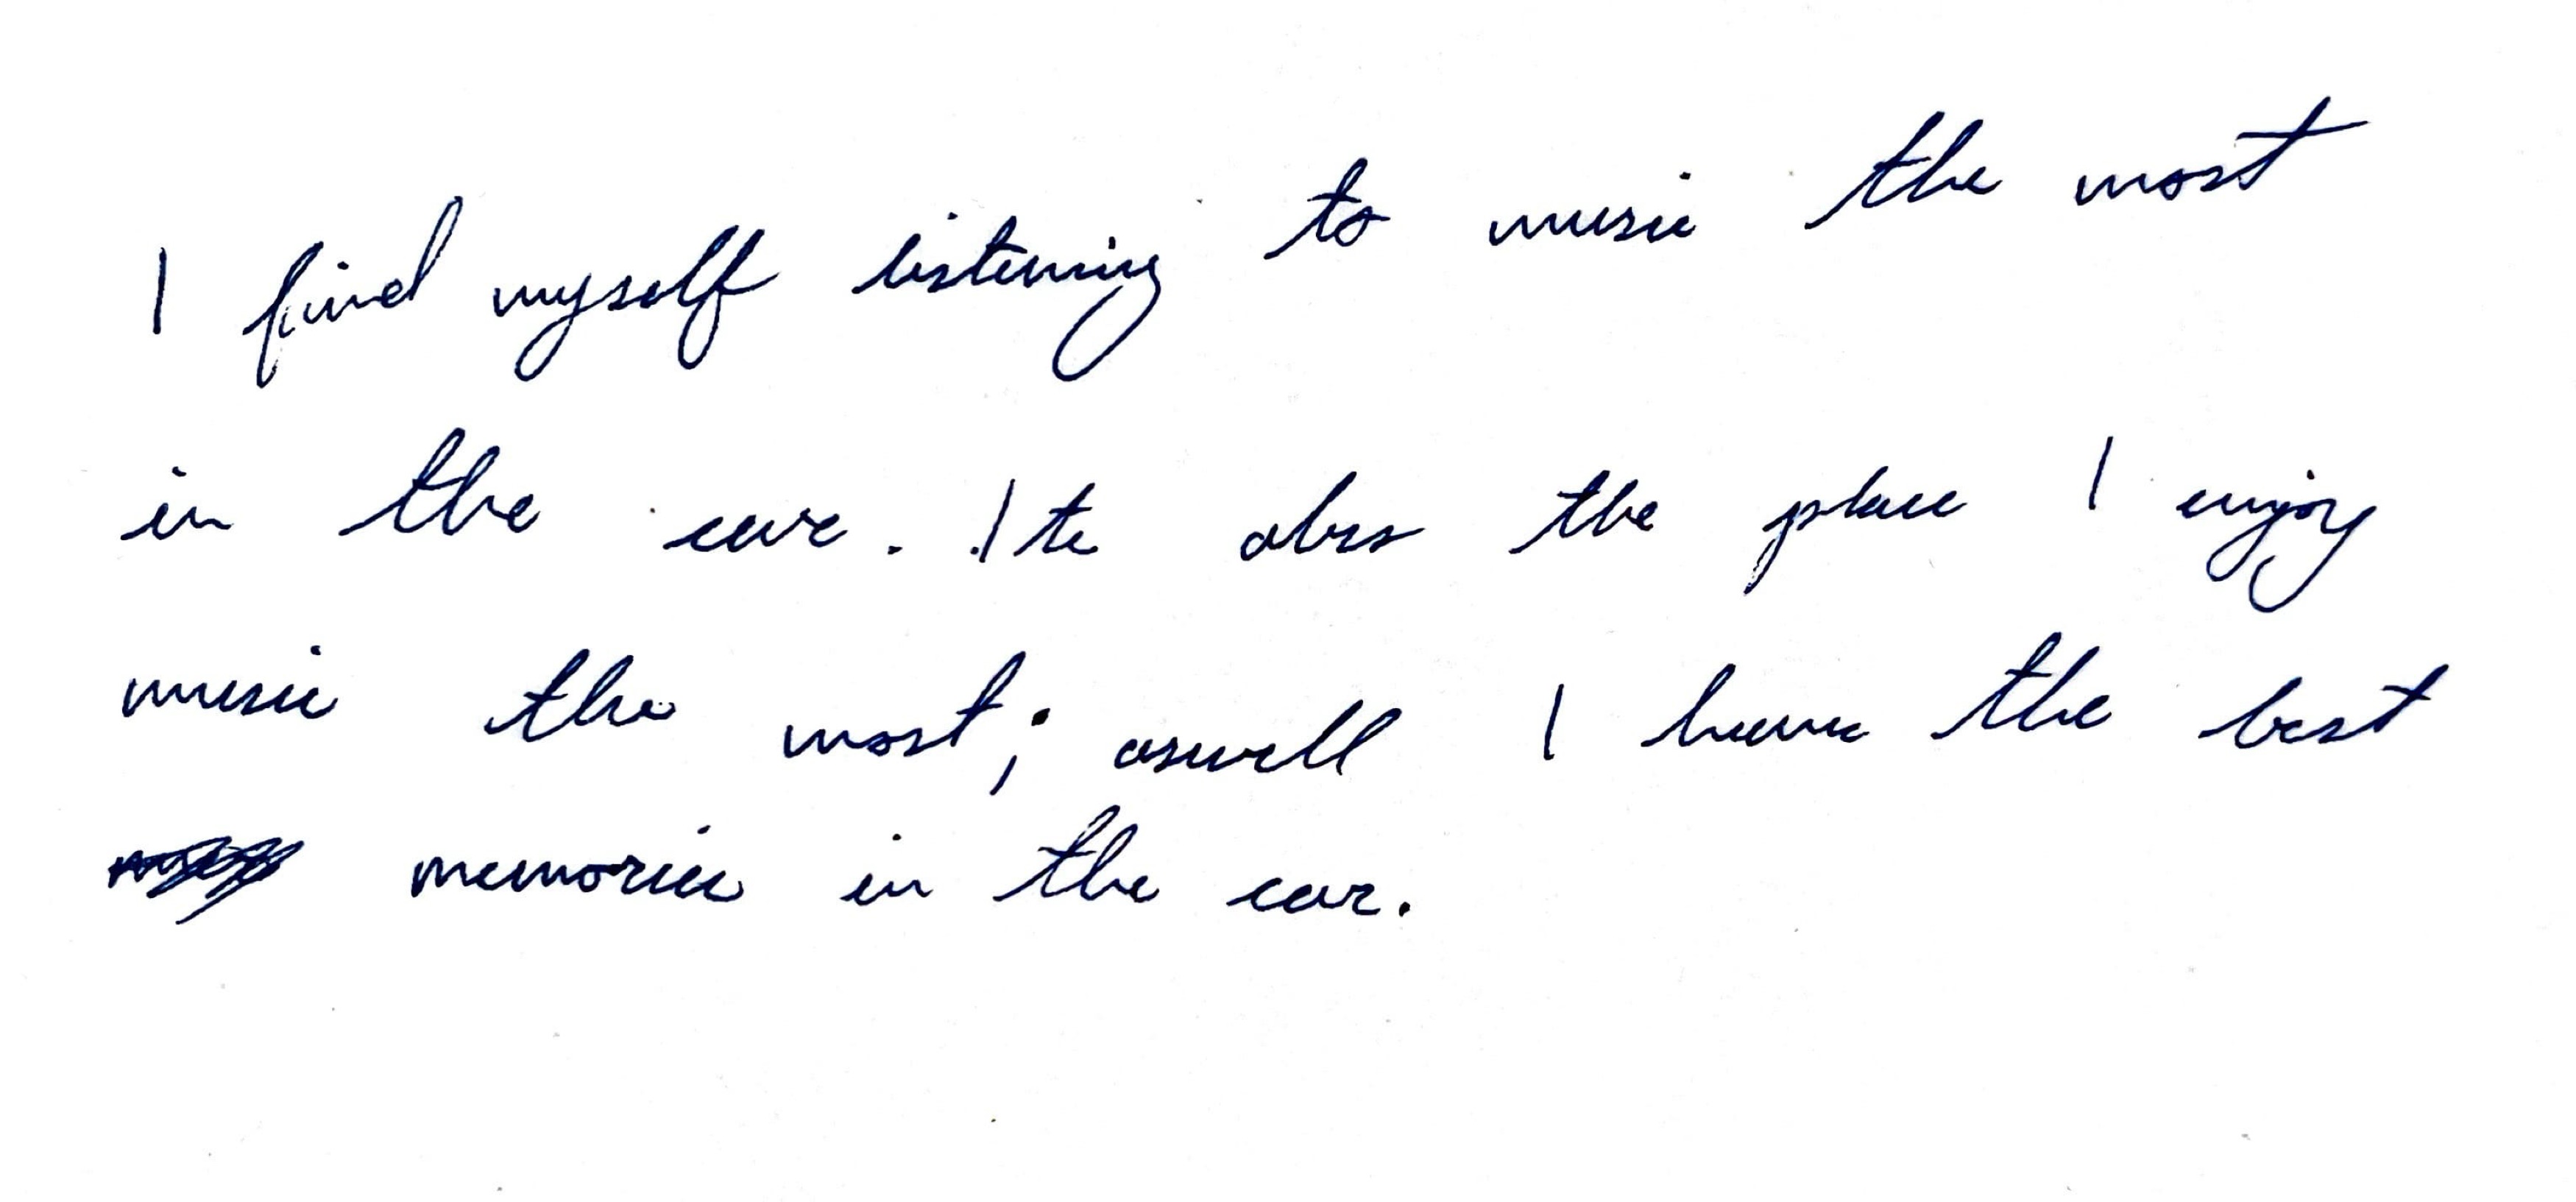 I find myself listening to music the most
in the car. Its also the place I enjoy
music the most; aswell I have the best
memories in the car.